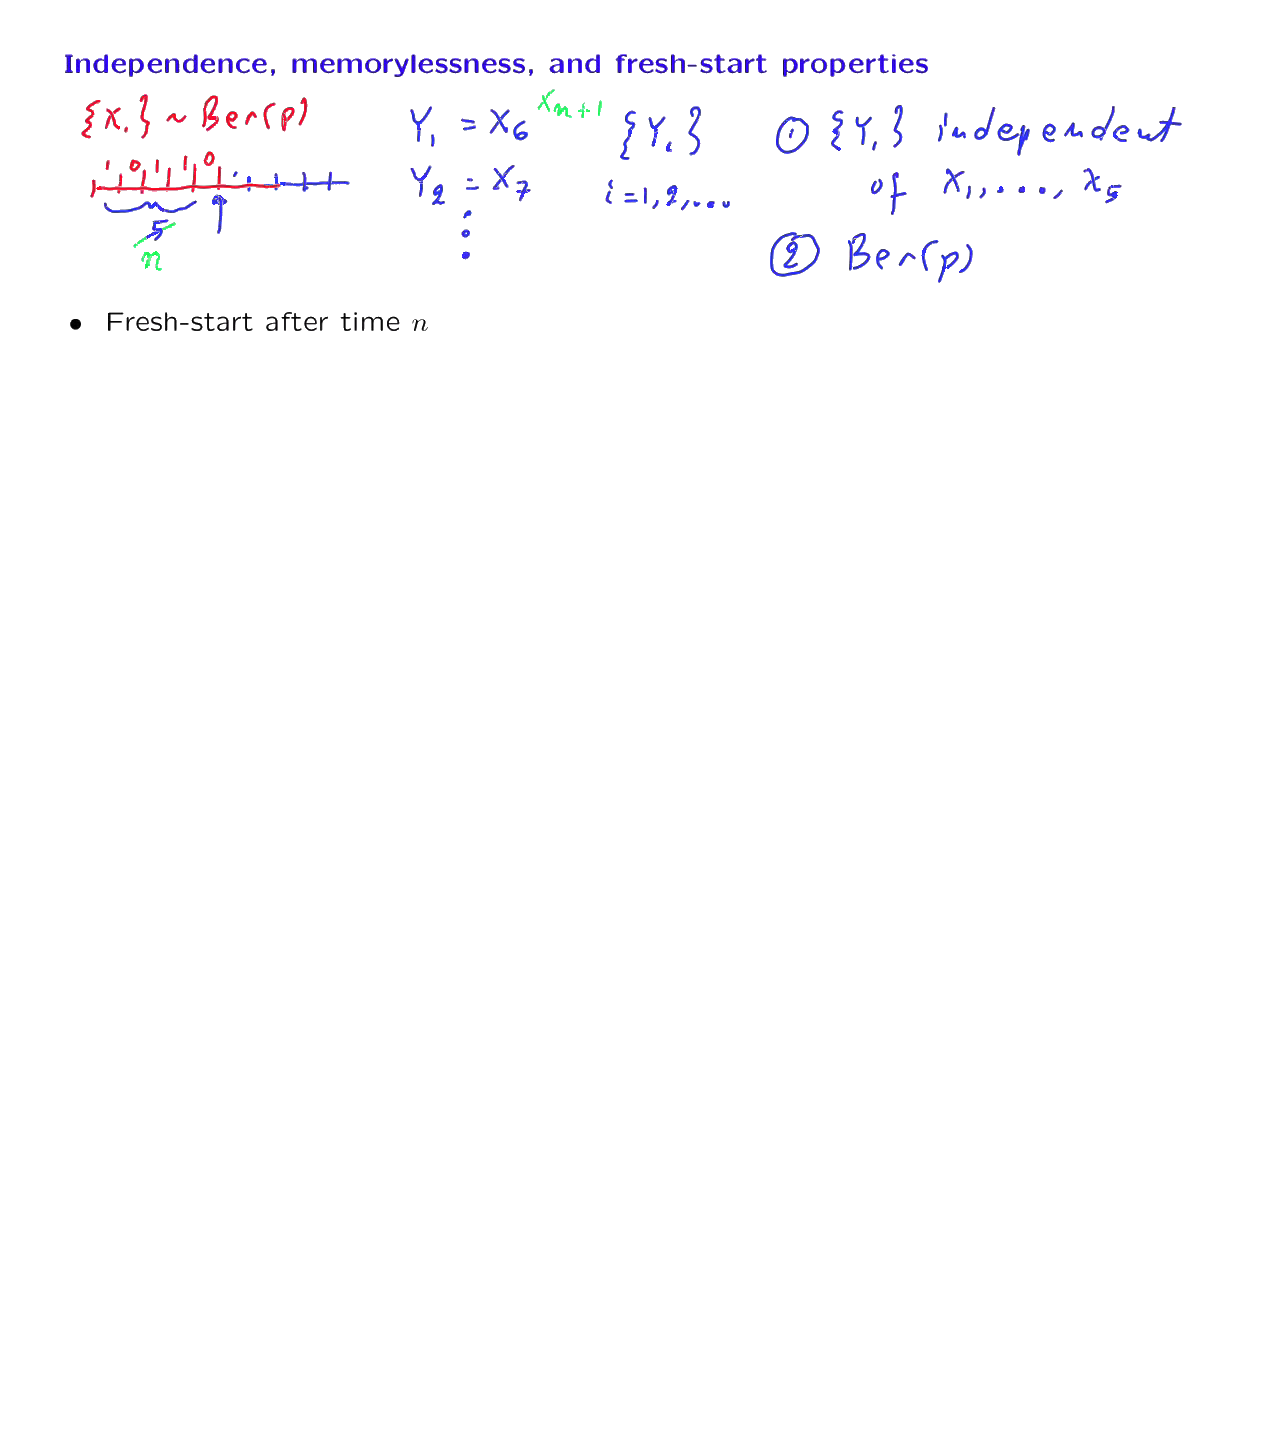 Independence, memorylessness, and fresh-start properties
{Xᵢ} ~ Ber(p)
1 0 1 1 0
5
n
Y₁ = X₆ Xₙ₊₁
Y₂ = X₇
⋮
{Yᵢ}
i = 1, 2, ...
① {Yᵢ} independent
of X₁, ..., X₅
② Ber(p)
• Fresh-start after time n